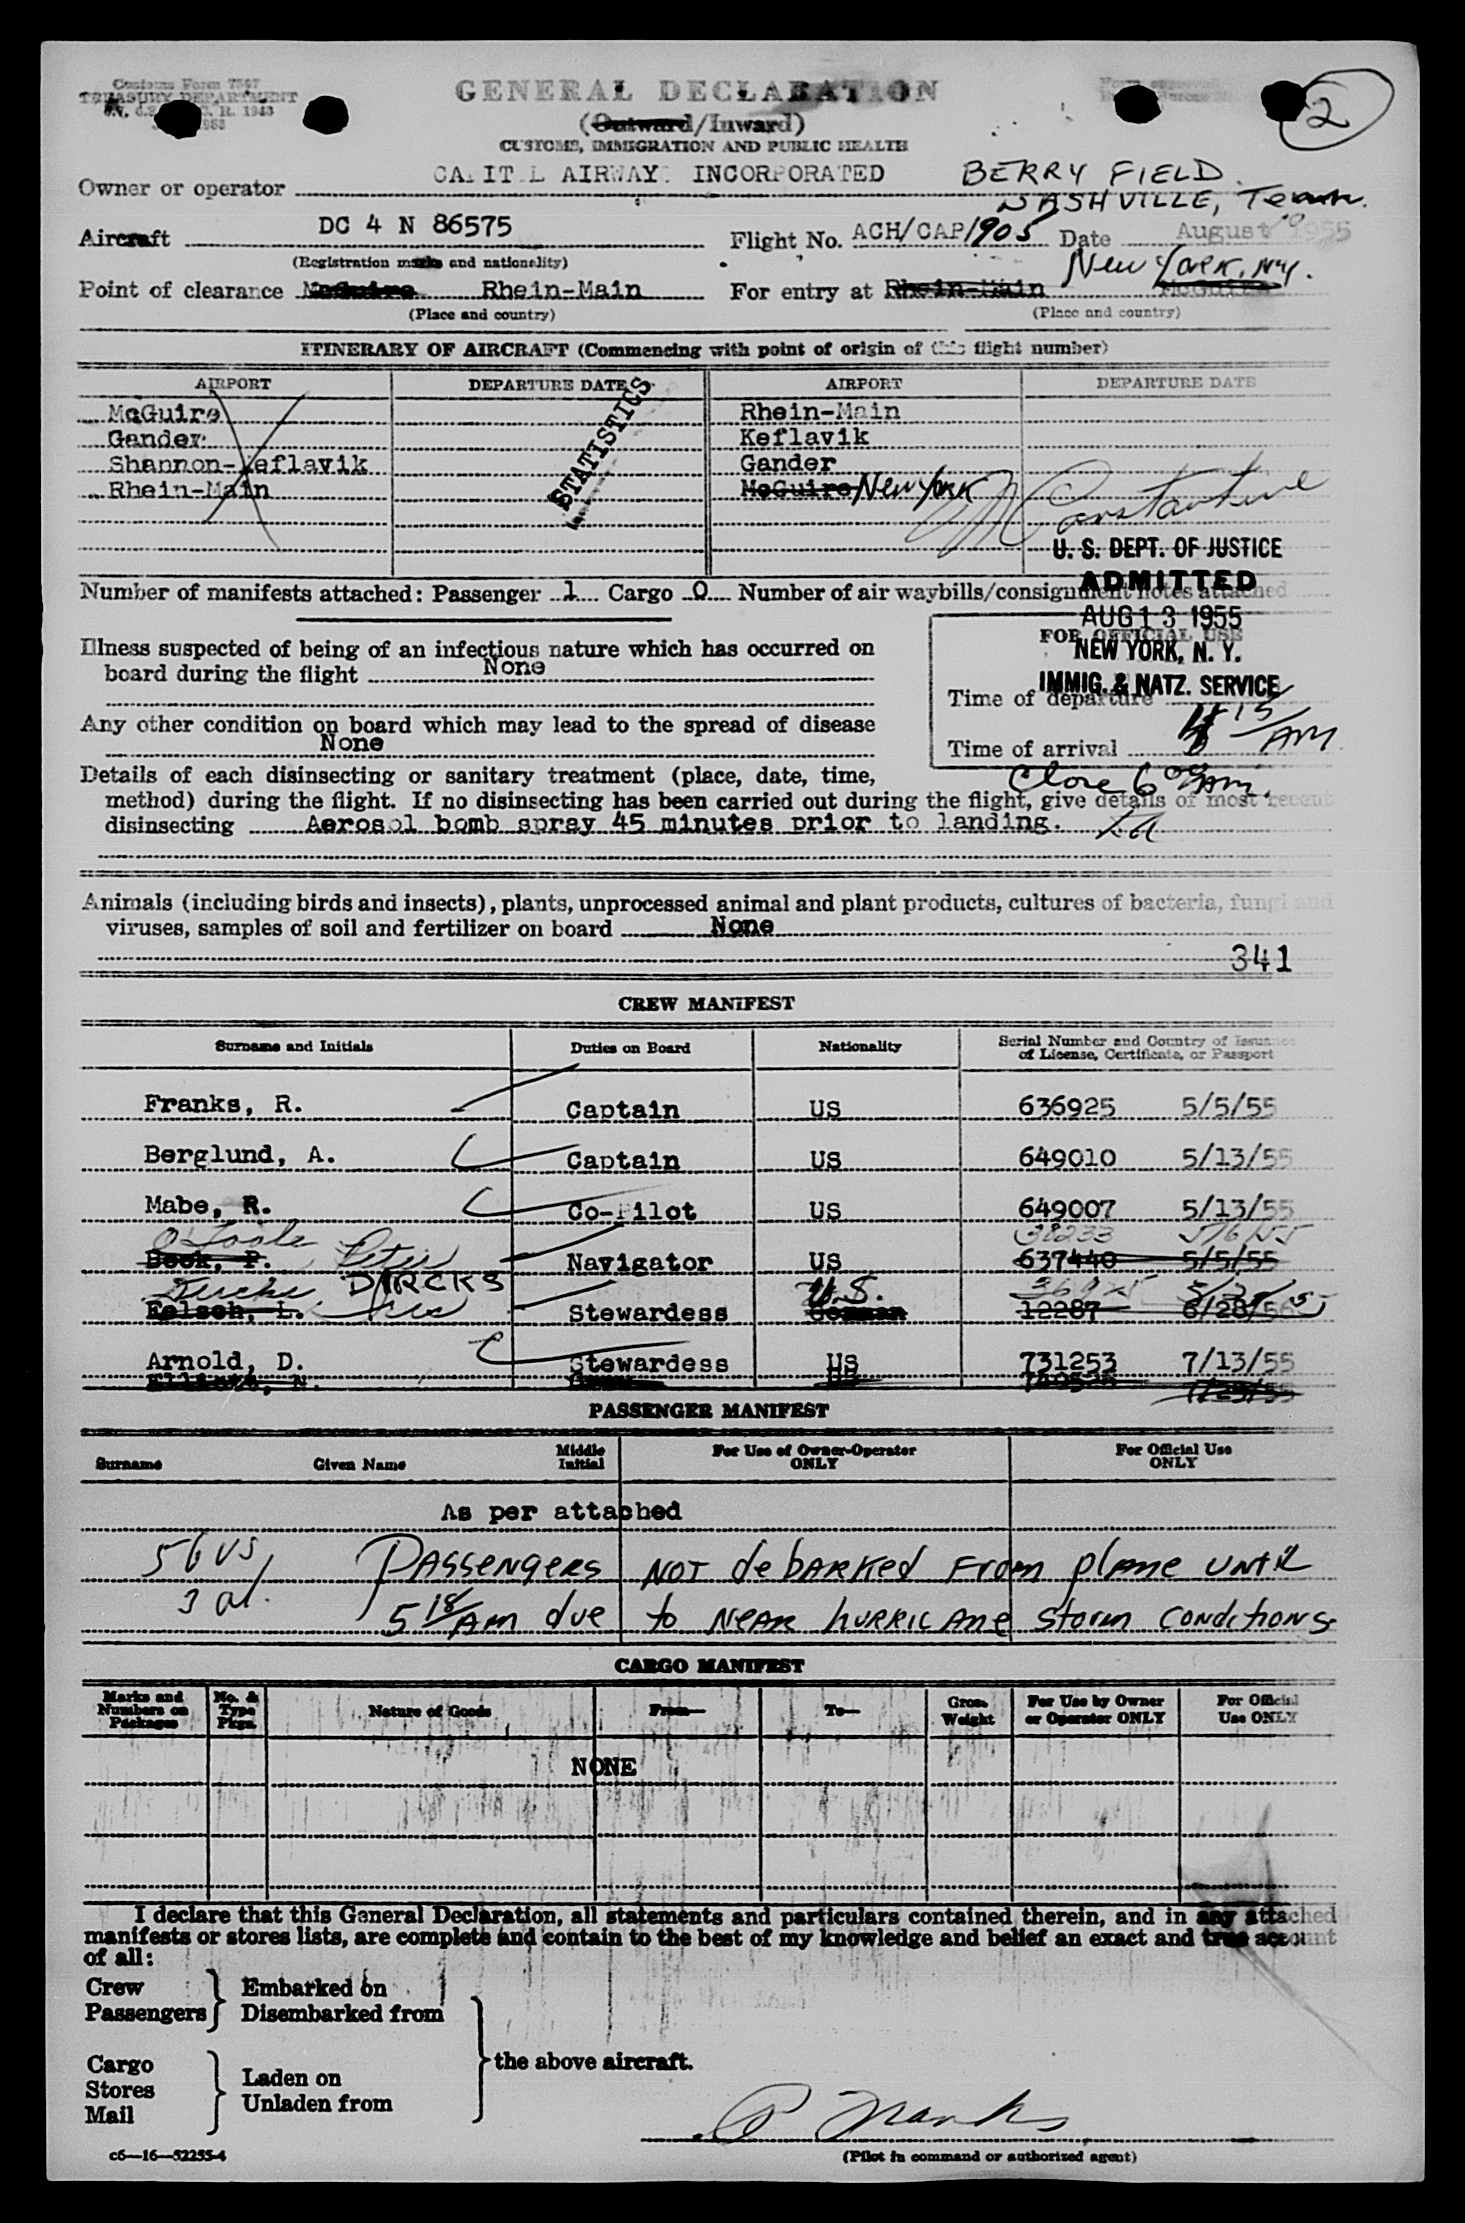 Customs Form 7507
TREASURY DEPARTMENT
GENERAL DECLARATION
2
(Outward/Inward)
CUSTOMS, IMMIGRATION AND PUBLIC HEALTH
Owner or operator CA IT L AIRWAY INCORPORATED BERRY FIELD
NASHVILLE, Tenn.
Aircraft DC 4 N 86575 Flight No. ACH/CAP/1905 Date August 1955
(Registration marks and nationality) New York, NY.
Point of clearance McGuire Rhein-Main For entry at Rhein-Main McGuire
(Place and country) (Place and country)
ITINERARY OF AIRCRAFT (Commencing with point of origin of this flight number)
AIRPORT DEPARTURE DATE AIRPORT DEPARTURE DATE
STATISTICS
McGuire Rhein-Main
Gander Keflavik
Shannon-Keflavik Gander
Rhein-Main McGuire New York Constantine
U. S. DEPT. OF JUSTICE
ADMITTED
Number of manifests attached: Passenger 1 Cargo 0 Number of air waybills/consignment notes attached
AUG 13 1955
FOR OFFICIAL USE
NEW YORK, N. Y.
Illness suspected of being of an infectious nature which has occurred on
board during the flight None
IMMIG. & NATZ. SERVICE
Time of departure
Any other condition on board which may lead to the spread of disease
None
15 AM
Time of arrival
Details of each disinsecting or sanitary treatment (place, date, time,
Close 6 00 AM.
method) during the flight. If no disinsecting has been carried out during the flight, give details of most recent
disinsecting Aerosol bomb spray 45 minutes prior to landing.
Animals (including birds and insects), plants, unprocessed animal and plant products, cultures of bacteria, fungi and
viruses, samples of soil and fertilizer on board None
341
CREW MANIFEST
Surname and Initials Duties on Board Nationality Serial Number and Country of Issuance
of License, Certificate, or Passport
Franks, R. Captain US 636925 5/5/55
Berglund, A. Captain US 649010 5/13/55
Mabe, R. Co-Pilot US 649007 5/13/55
O'Toole Peter 38233 5/6/55
Beck, P. Navigator US 637440 5/5/55
DIRCKS U.S.
Felsch, L. Stewardess German 12287 6/28/56
Arnold, D. Stewardess US 731253 7/13/55
Elliott, N. US
PASSENGER MANIFEST
Surname Given Name Middle Initial For Use of Owner-Operator ONLY For Official Use ONLY
As per attached
56 US Passengers not debarked from plane until
3 al. 5 18 AM due to near hurricane storm conditions
CARGO MANIFEST
Marks and Numbers on Packages No. & Type Pkgs. Nature of Goods From— To— Gross Weight For Use by Owner or Operator ONLY For Official Use ONLY
NONE
I declare that this General Declaration, all statements and particulars contained therein, and in any attached
manifests or stores lists, are complete and contain to the best of my knowledge and belief an exact and true account
of all:
Crew Embarked on
Passengers Disembarked from
the above aircraft.
Cargo Laden on
Stores Unladen from
Mail
R Franks
c6—16—52255-4 (Pilot in command or authorized agent)